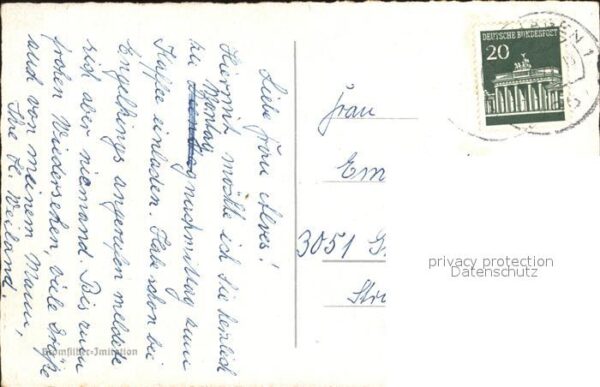 Liebe Frau Alves!
Hiermit möchte ich Sie herzlich
zu Montag nachmittag zum
Kaffee einladen. Habe schon bei
Engelkings angerufen meldete
sich aber niemand. Bis zum
frohen Wiedersehen, viele Grüße
auch von meinem Mann,
Ihre H. Weiland.
Bromsilber-Imitation
DEUTSCHE BUNDESPOST
20
HAGEN 1
Frau
Em
3051 G
Str
privacy protection
Datenschutz